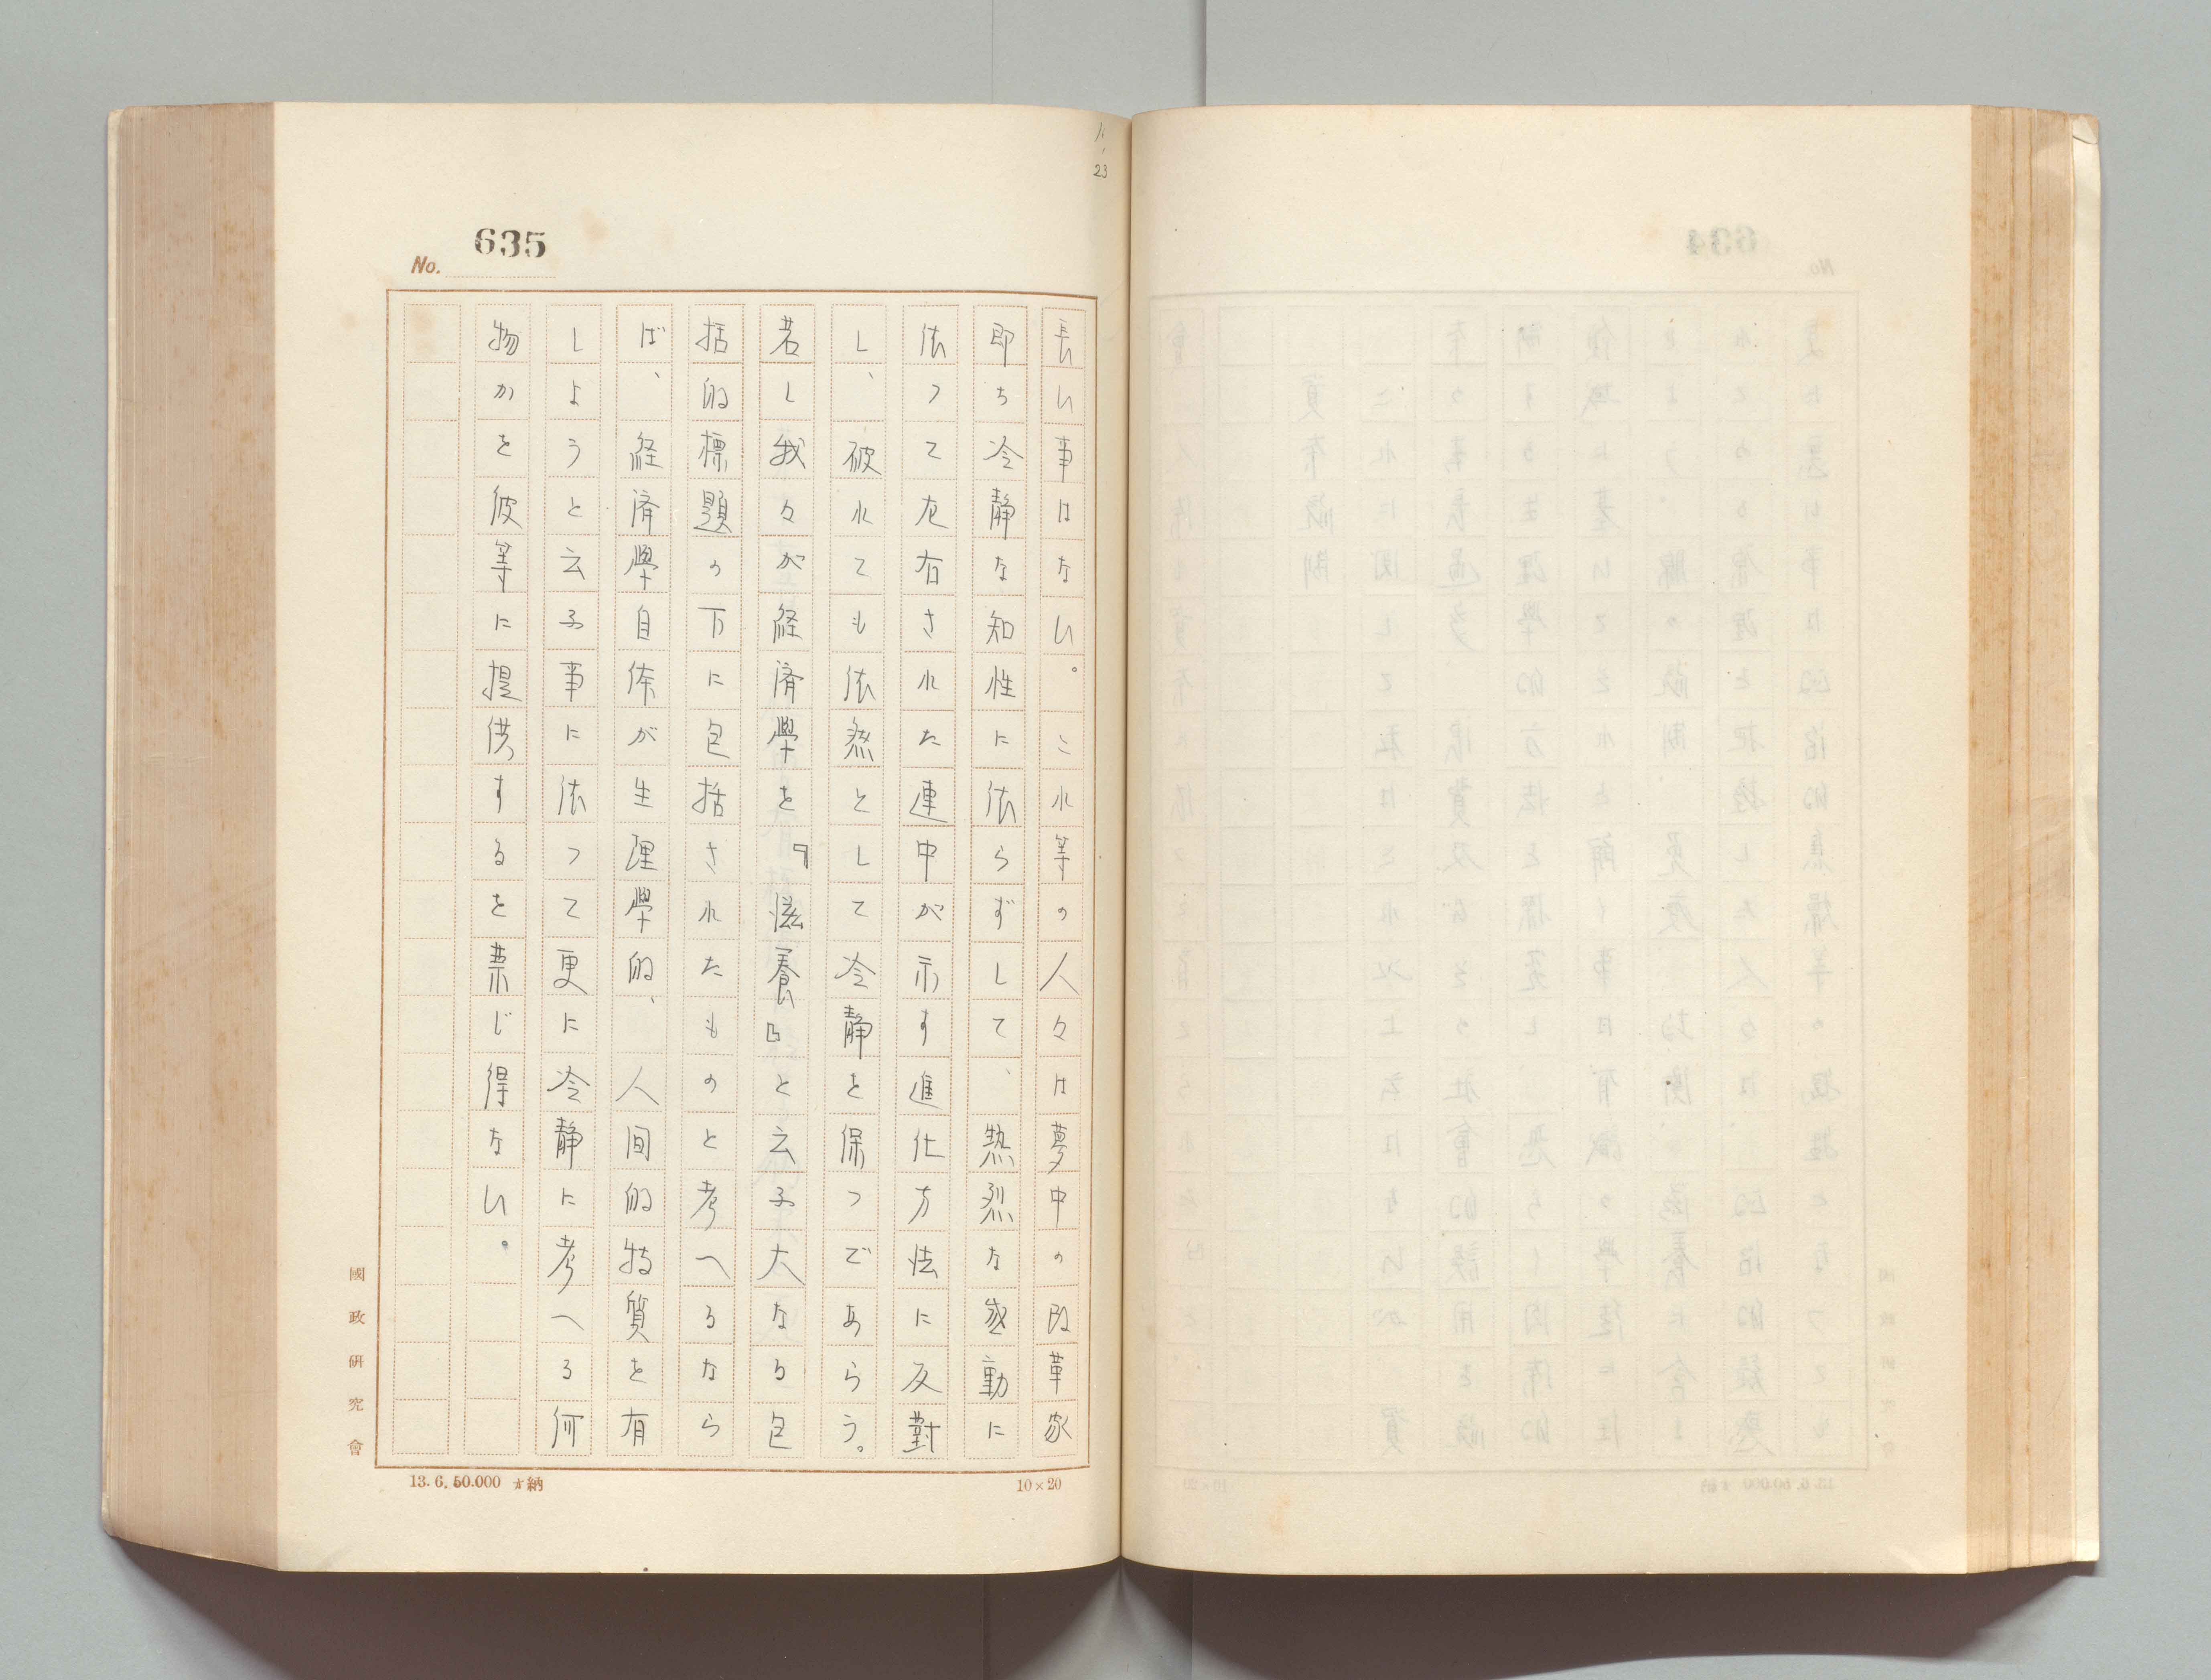 1.
23
No. 635
長い事はない。これ等の人々は夢中の改革家
即ち冷静な知性に依らずして、熱烈な感動に
依つて左右された連中が示す進化方法に反對
し、破れても依然として冷静を保つであらう。
若し我々が経済學を『滋養』と云ふ大なる包
括的標題の下に包括されたものと考へるなら
ば、経済學自体が生理學的、人间的特質を有
しようと云ふ事に依つて更に冷静に考へる何
物かを彼等に提供するを禀じ得ない。
國政研究會
13.6.50.000 納
10×20